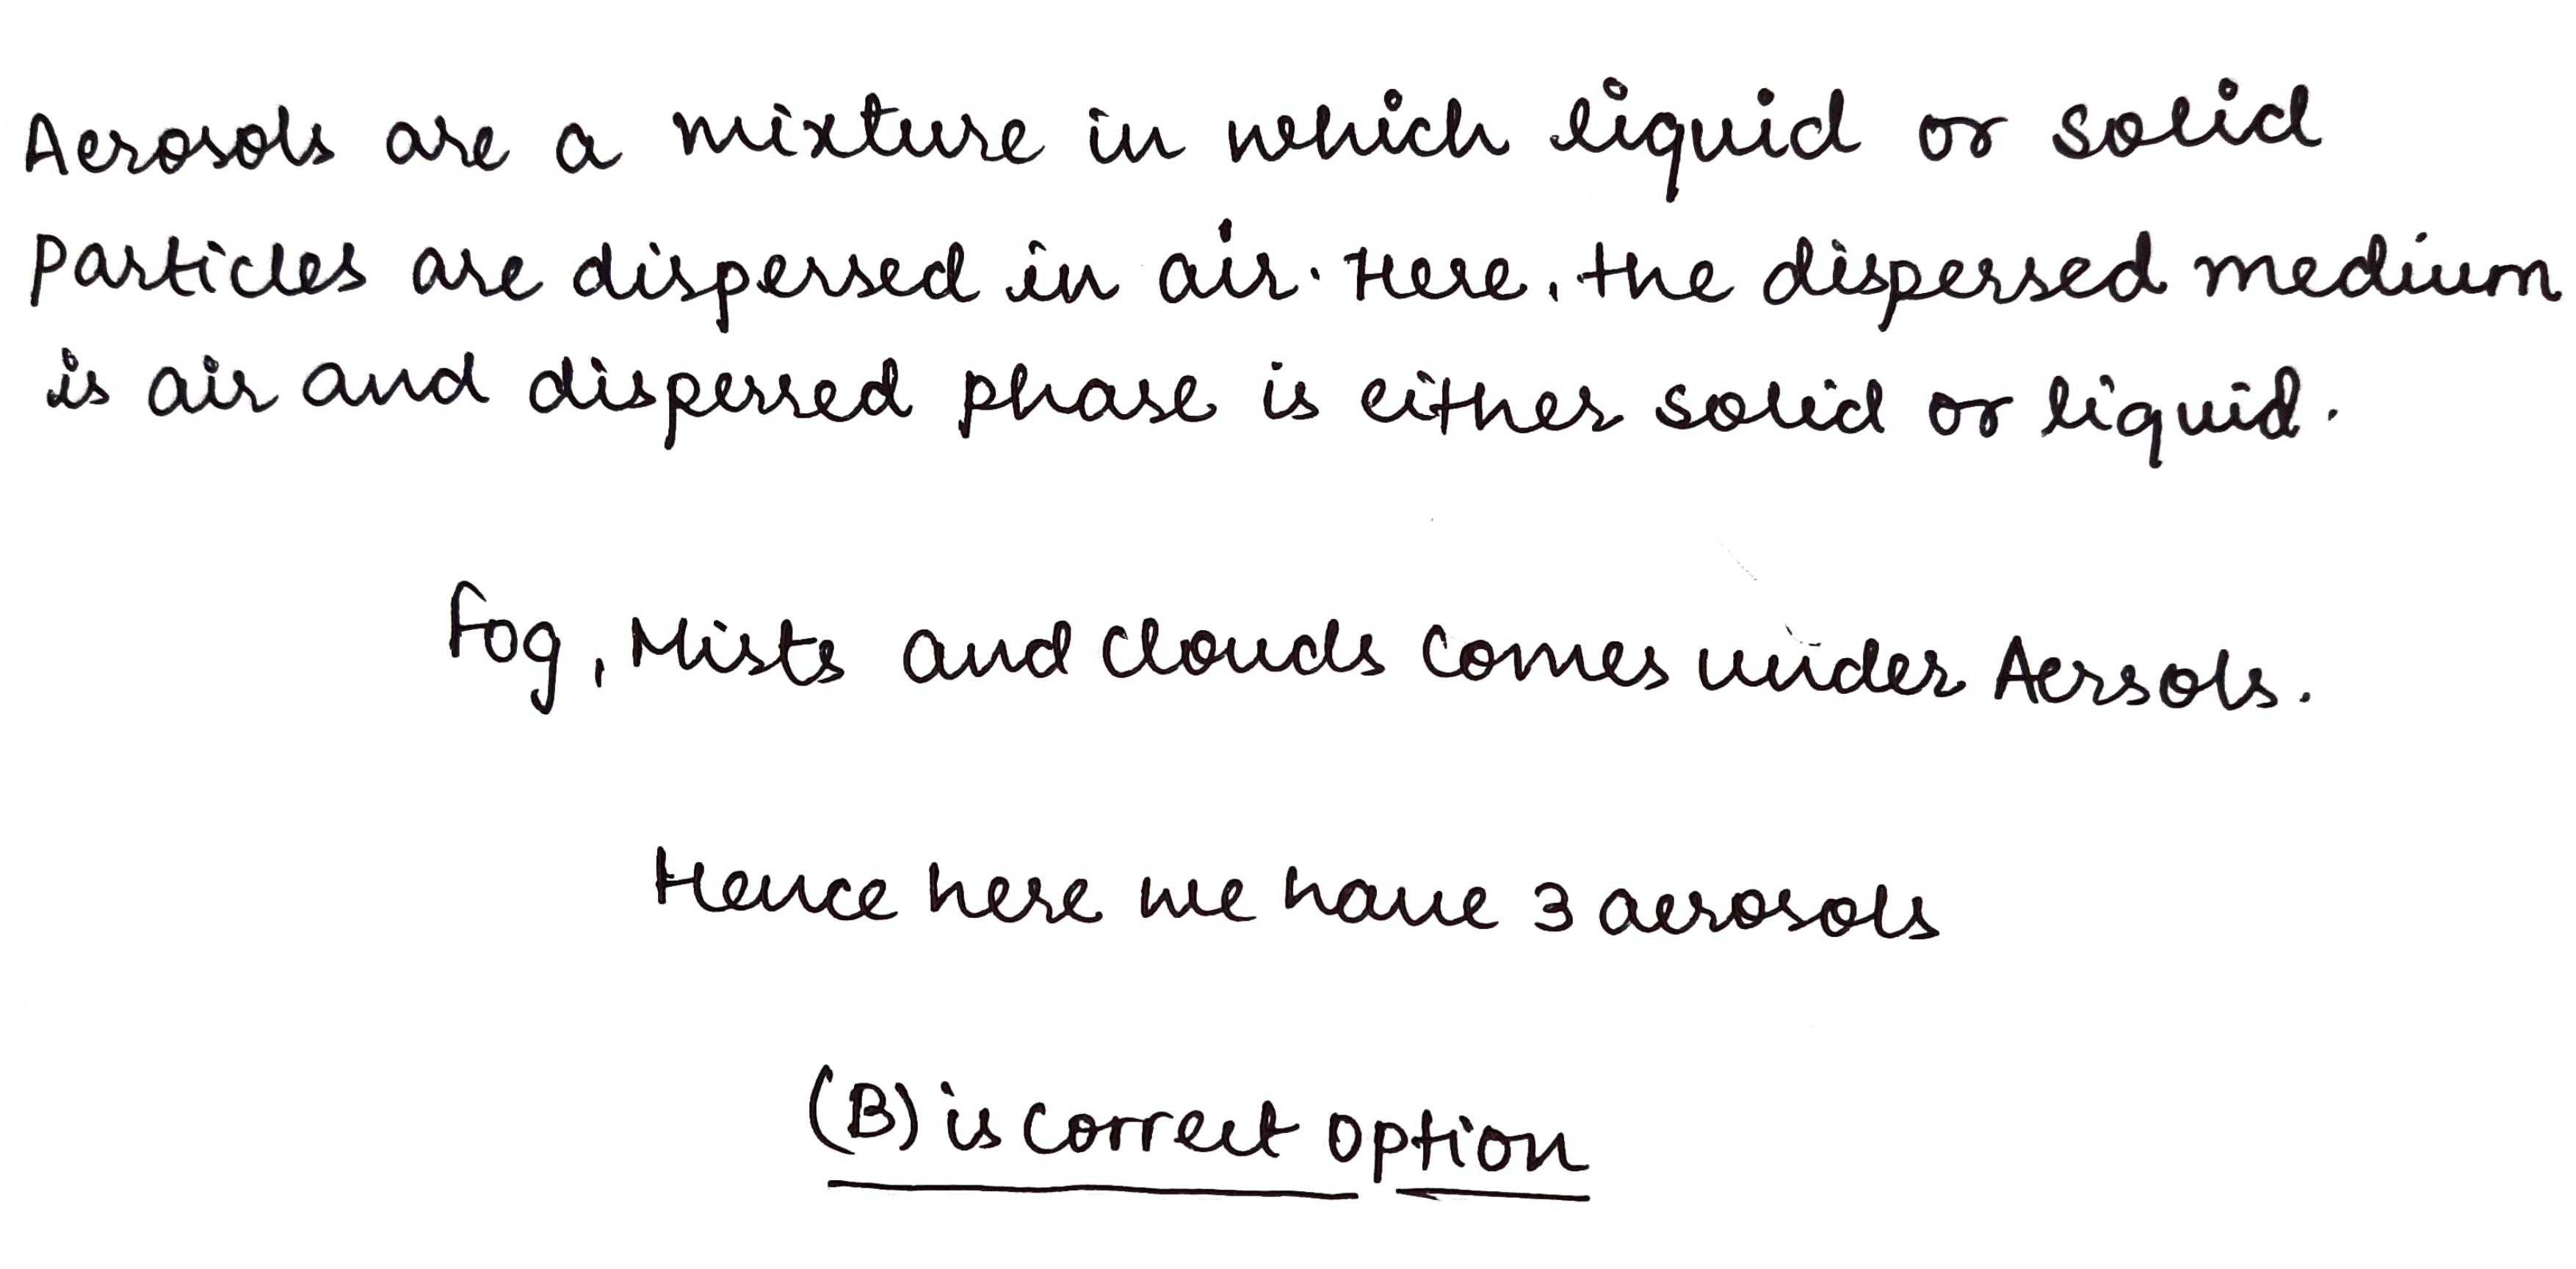 Aerosols are a mixture in which liquid or solid
particles are dispersed in air. Here, the dispersed medium
is air and dispersed phase is either solid or liquid.
Fog, Mists and clouds comes under Aersols.
Hence here we have 3 aerosols
(B) is correct option